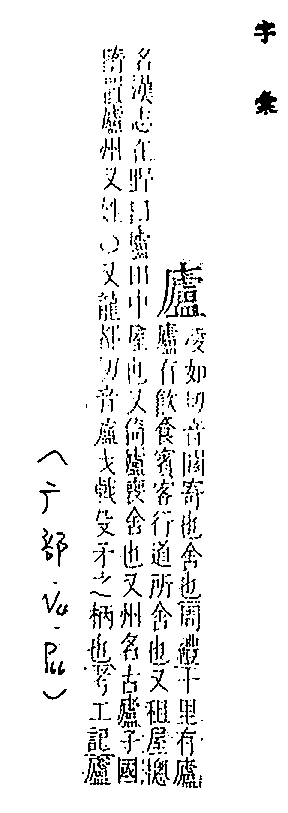 字彙
廬
凌如切音閭寄也舍也周禮十里有廬
廬有飲食賓客行道所舍也又租屋總
名漢志在野曰廬田中屋也又倚廬喪舍也又州名古廬子國
隋置廬州又姓〇又龍都切音盧戈戟殳矛之柄也考工記廬
（广部